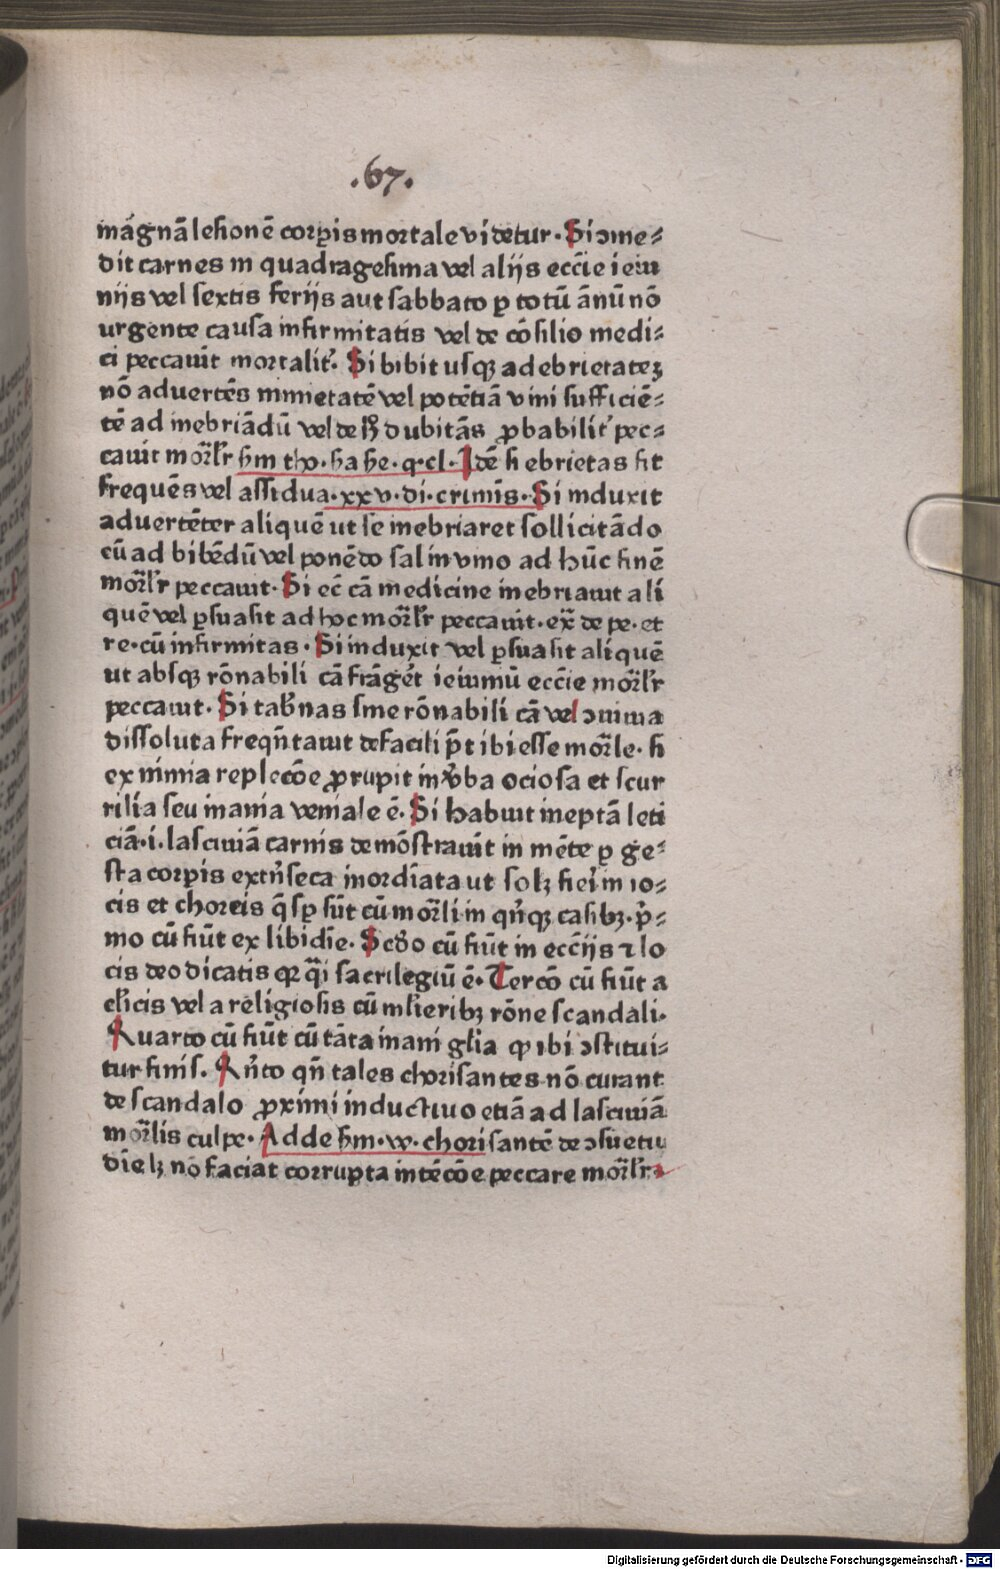 .67.
māgnā lesionē corꝑis mortale videtur. Si ɔme⸗
dit carnes in quadragesima vel alijs ecc̄ie ieiu
nijs vel sextis ferijs aut sabbato ꝑ totū ānū nō
urgente causa infirmitatis vel de cōsilio medi⸗
ci peccauit mortalit᷑. Si bibit usqꝫ ad ebrietateꝫ
nō aduertēs nimietatē vel potētiā vini sufficiē⸗
tē ad inebriādū vel de h̄ dubitās ꝓbabilit᷑ pec⸗
cauit mor̄lr̄ s̄m tho. ha he. q. cl. Idē si ebrietas sit
frequēs vel assidua. xxv. di. crimīs. Si induxit
aduertēter aliquē ut se inebriaret sollicitādo
cū ad bibēdū vel ponēdo sal in vino ad hūc finē
mor̄lr̄ peccauit. Si ec̄ cā medicine inebriauit ali
quē vel ꝑsuasit ad hoc mor̄lr̄ peccauit. ex̄ de pe. et
re. cū infirmitas. Si induxit vel ꝑsuasit aliquē
ut absqꝫ rōnabili cā frāgēt ieiuniū ecc̄ie mor̄lr̄
peccauit. Si tab̄nas sine rōnabili cā vel ɔniuia
dissoluta freqn̄tauit defacili p̄t ibi esse mor̄le. si
ex nimia replecōe ꝓrupit in v̄ba ociosa et scur
rilia seu inania veniale ē. Si habuit ineptā leti
ciā. i. lasciuiā carnis demōstrauit in mēte ꝑ ge⸗
sta corꝑis extn̄seca inordīata ut solꝫ fieri in io⸗
cis et choreis q̄ sꝑ sūt cū mor̄li in qn̄qꝫ casibꝫ. p̄⸗
mo cū fiūt ex libidīe. Scd̄o cū fiūt in ecc̄ijs ⁊ lo
cis deo dicatis qꝛ q̄i sacrilegiū ē. Tercō cū fiūt a
cl̄icis vel a religiosis cū ml̄ieribꝫ rōne scandali.
Quarto cū fiūt cū tāta inani gl̄ia ꝙ ibi ɔstitui⸗
tur finis. Qn̄to qn̄ tales chorisantes nō curant
de scandalo ꝓximi inductiuo etiā ad lasciuiā
mor̄lis culpe. Adde s̄m. w. chorisantē de ɔsuetu
dīe lꝫ nō faciat corrupta intēcōe peccare mor̄lr̄.
Digitalisierung gefördert durch die Deutsche Forschungsgemeinschaft - DFG